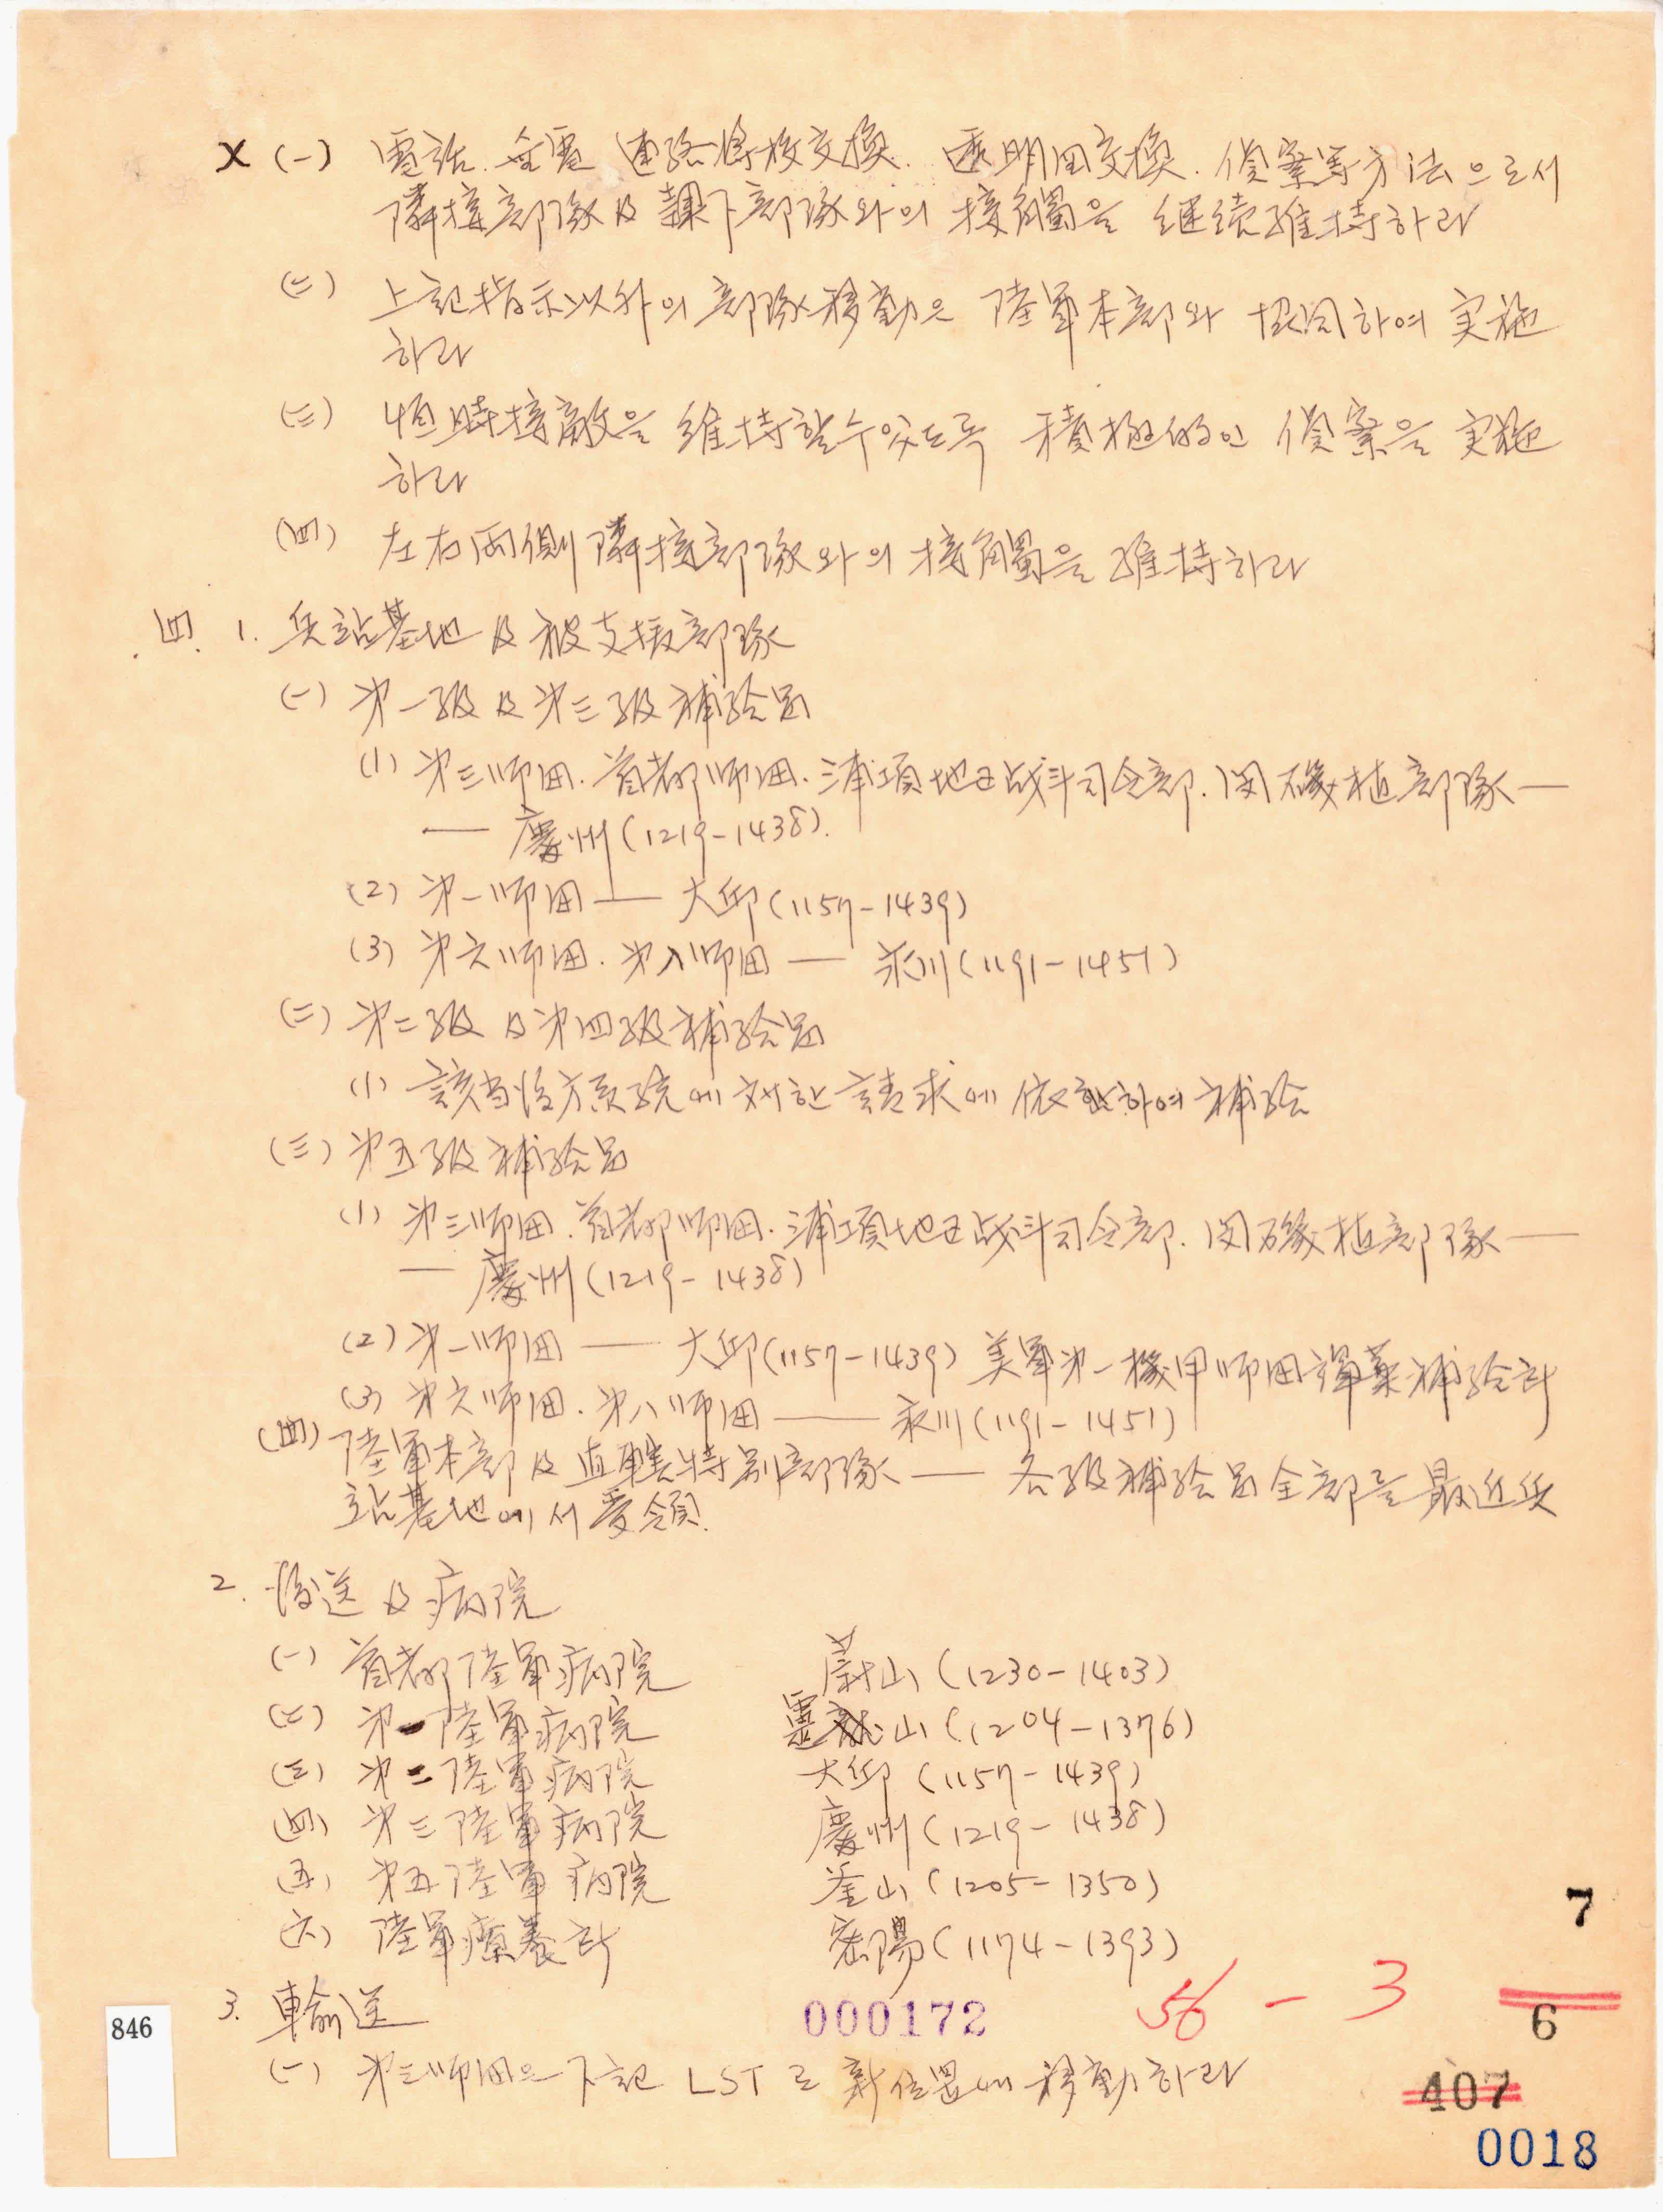 X (一) 電話. 無電 連絡將校交換. 透明図交換. 偵察等方法으로서
隣接部隊及 隷下部隊와의 接觸을 継続維持하라
(二) 上記指示以外의 部隊移動은 陸軍本部와 協同하여 実施
하라
(三) 恒時接敵을 維持할수있도록 積極的인 偵察을 実施
하라
(四) 左右両側隣接部隊와의 接觸을 維持하라
四. 1. 兵站基地 及 被支援部隊
(一) 第一級 及 第三級 補給品
(1) 第三師団. 首都師団. 浦項地区战斗司令部. 閔磯植部隊 —
— 慶州(1219-1438).
(2) 第一師団 — 大邱(1157-1439)
(3) 第六師団. 第八師団 — 永川(1191-1451)
(二) 第二級 及 第四級補給品
(1) 該当後方系統에 対한 請求에 依하여 補給
(三) 第五級補給品
(1) 第三師団. 首都師団. 浦項地区战斗司令部. 閔磯植部隊 —
— 慶州(1219-1438)
(2) 第一師団 — 大邱(1157-1439) 美軍第一機甲師団彈薬補給所
(3) 第六師団. 第八師団 — 永川(1191-1451)
(四) 陸軍本部 及 直轄特別部隊 — 各級補給品全部를 最近兵
站基地에서 受領.
2. 後送 及 病院
(一) 首都陸軍病院 蔚山(1230-1403)
(二) 第一陸軍病院 靈山(1204-1376)
(三) 第二陸軍病院 大邱(1157-1439)
(四) 第三陸軍病院 慶州(1219-1438)
(五) 第五陸軍病院 釜山(1205-1350)
(六) 陸軍療養所 密陽(1174-1393)
7
3. 車輸送
000172
56 - 3
6
846
(一) 第三師団은 下記 LST로 新位置에 移動하라
407
0018